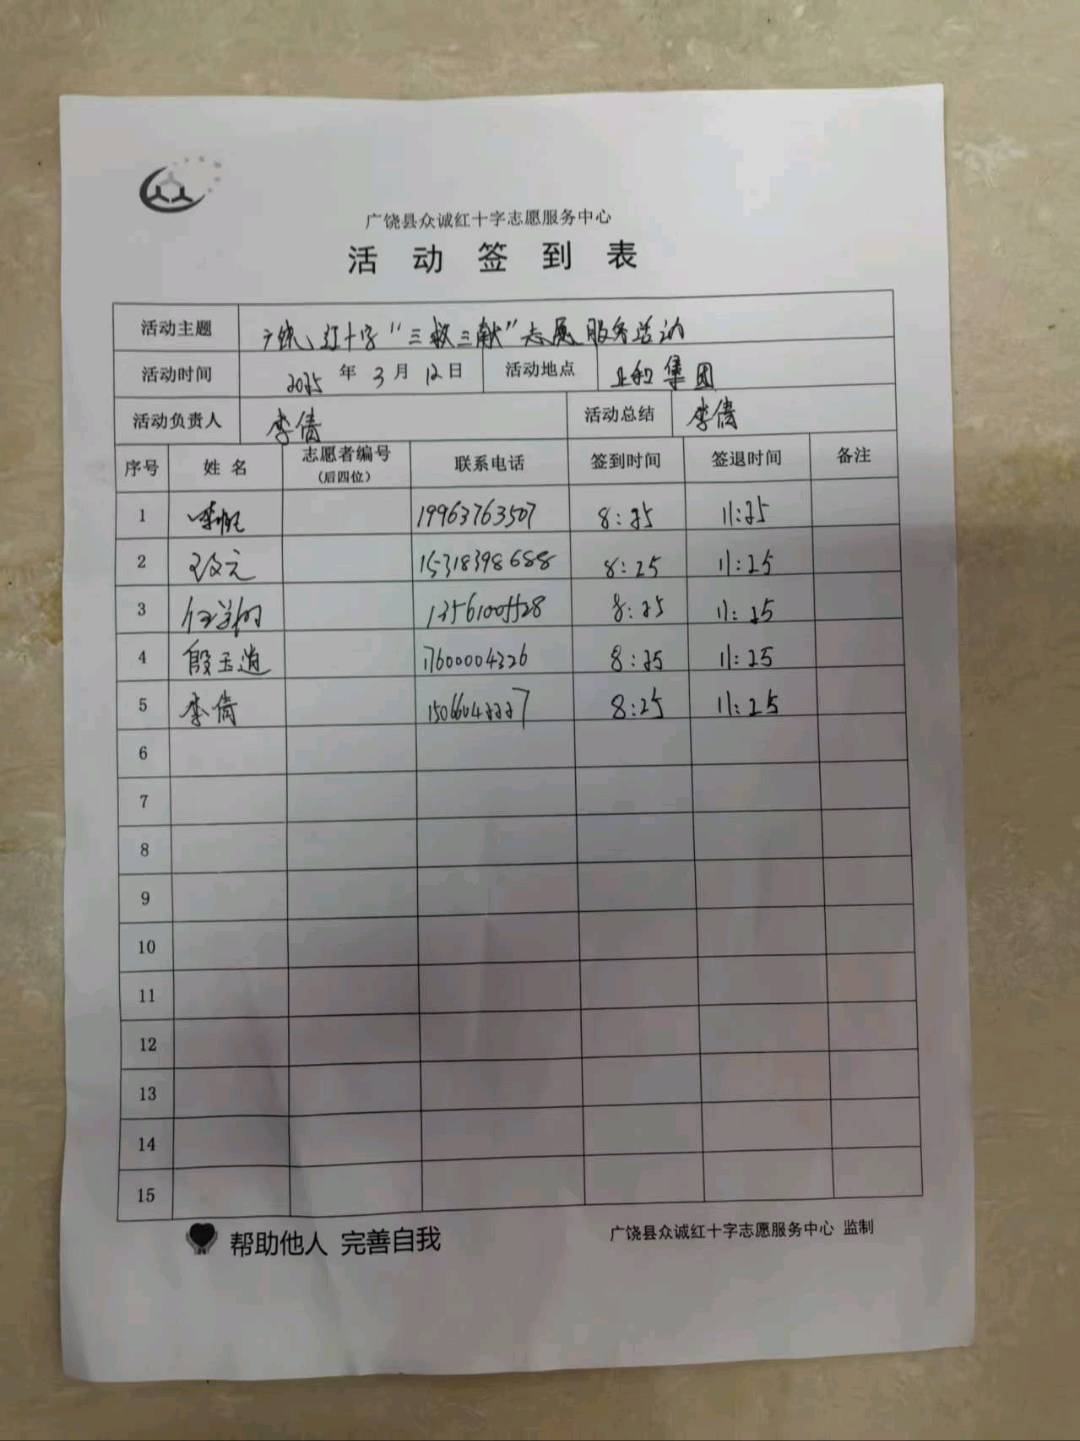 广饶县众诚红十字志愿服务中心
活动签到表
活动主题 广饶红十字“三救三献”志愿服务活动
活动时间 2025 年 3 月 12 日 活动地点 正和集团
活动负责人 李倩 活动总结 李倩
序号 姓名 志愿者编号 (后四位) 联系电话 签到时间 签退时间 备注
1 19963763507 8:25 11:25
2 15318398688 8:25 11:25
3 13561005528 8:25 11:25
4 殷玉逍 17600004326 8:25 11:25
5 李倩 15066042227 8:25 11:25
6
7
8
9
10
11
12
13
14
15
帮助他人 完善自我
广饶县众诚红十字志愿服务中心 监制